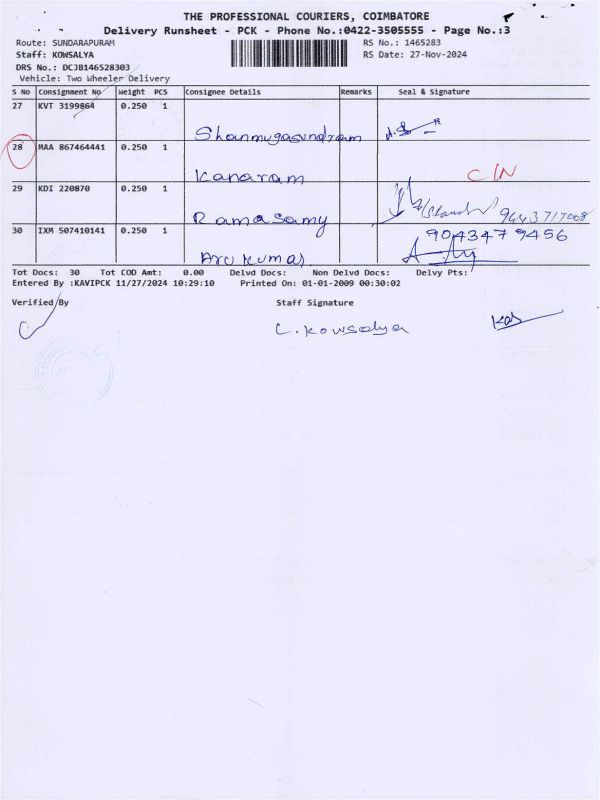 THE PROFESSIONAL COURIERS, COIMBATORE
Delivery Runsheet - PCK - Phone No.:0422-3505555 - Page No.:3
Route: SUNDARAPURAM RS No.: 1465283
Staff: KOWSALYA RS Date: 27-Nov-2024
DRS No.: DCJB146528303
Vehicle: Two Wheeler Delivery
S No Consignment No Weight PCS Consignee Details Remarks Seal & Signature
27 KVT 3199864 0.250 1
Shanmugasundram
28 MAA 867464441 0.250 1
Kanaram C/N
29 KDI 220870 0.250 1
Ramasamy 9443717008
30 IXM 507410141 0.250 1 9043479456
Arukumar
Tot Docs: 30 Tot COD Amt: 0.00 Delvd Docs: Non Delvd Docs: Delvy Pts:
Entered By :KAVIPCK 11/27/2024 10:29:10 Printed On: 01-01-2009 00:30:02
Verified By Staff Signature
C. Kowsalya